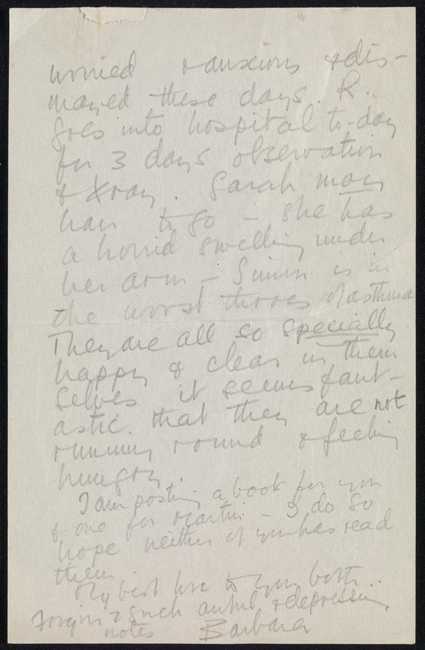 worried & anxious & dis-
mayed these days. R.
goes into hospital to-day
for 3 days observation
& Xray. Sarah may
have to go – she has
a horrid swelling under
her arm – Simon is in
the worst throes of asthma
They are all so specially
happy & clear in them
selves it seems fant-
astic that they are not
running round & feeling
hungry.
I am posting a book for you
& one for Martin – I do so
hope neither of you has read
them.
My best love to you both..
Forgive such awful & depressing
notes Barbara